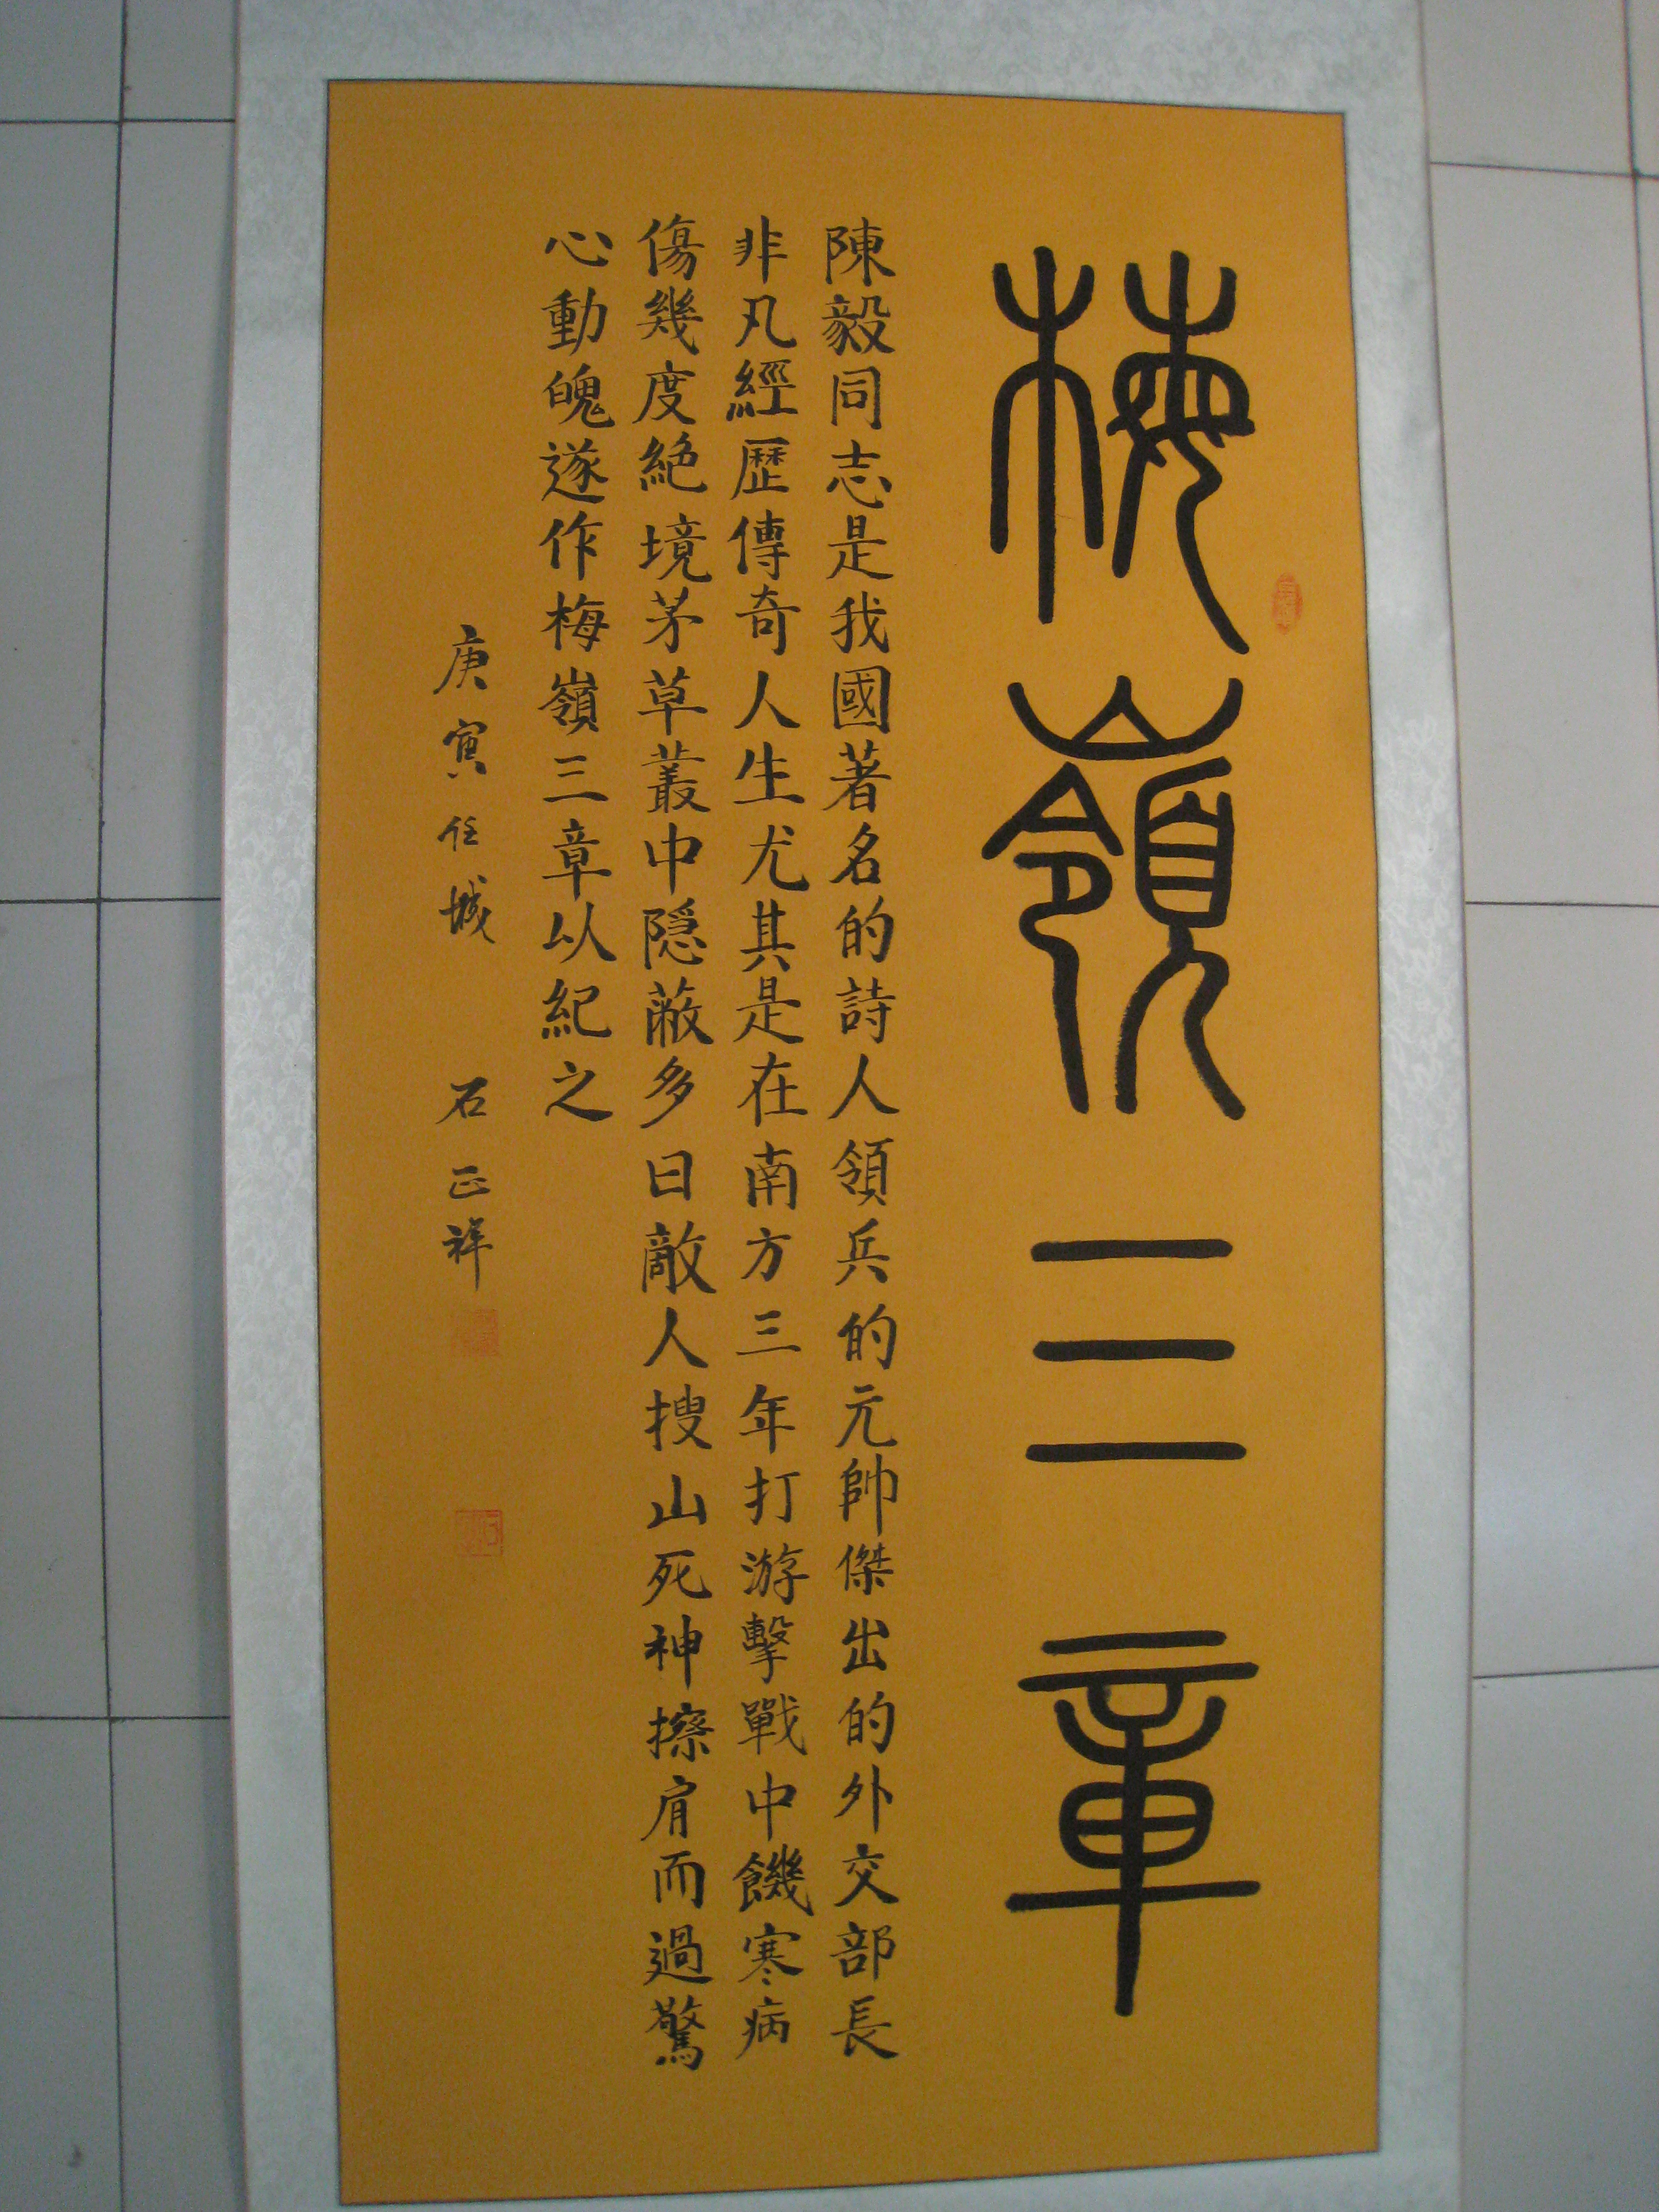 梅嶺三章
陳毅同志是我國著名的詩人領兵的元帥傑出的外交部長
非凡經歷傳奇人生尤其是在南方三年打游擊戰中饑寒病
傷幾度絕境茅草叢中隱蔽多日敵人搜山死神擦肩而過驚
心動魄遂作梅嶺三章以紀之
庚寅任城 石正祥